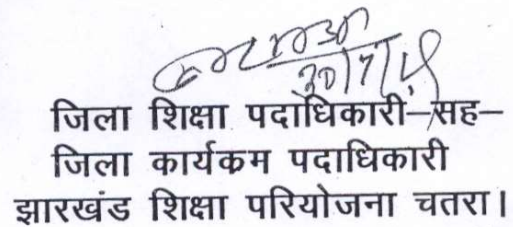 30/7/15
जिला शिक्षा पदाधिकारी–सह–
जिला कार्यकम पदाधिकारी
झारखंड शिक्षा परियोजना चतरा।